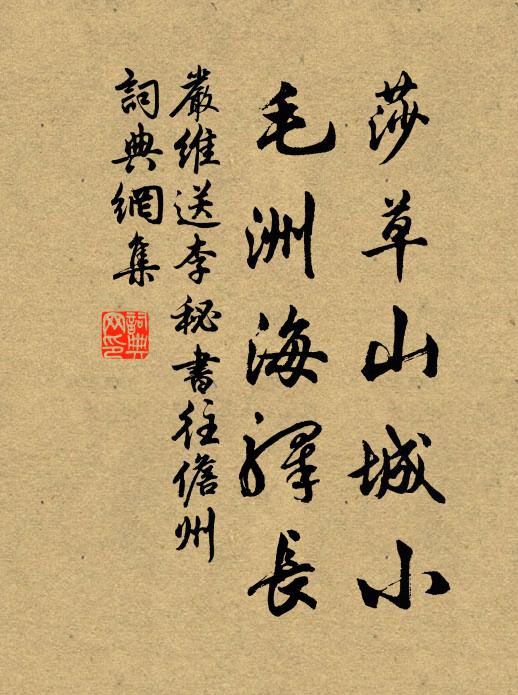 莎草山城小
毛洲海驛長
嚴維送李秘書往儋州
詞典網集
詞典网印